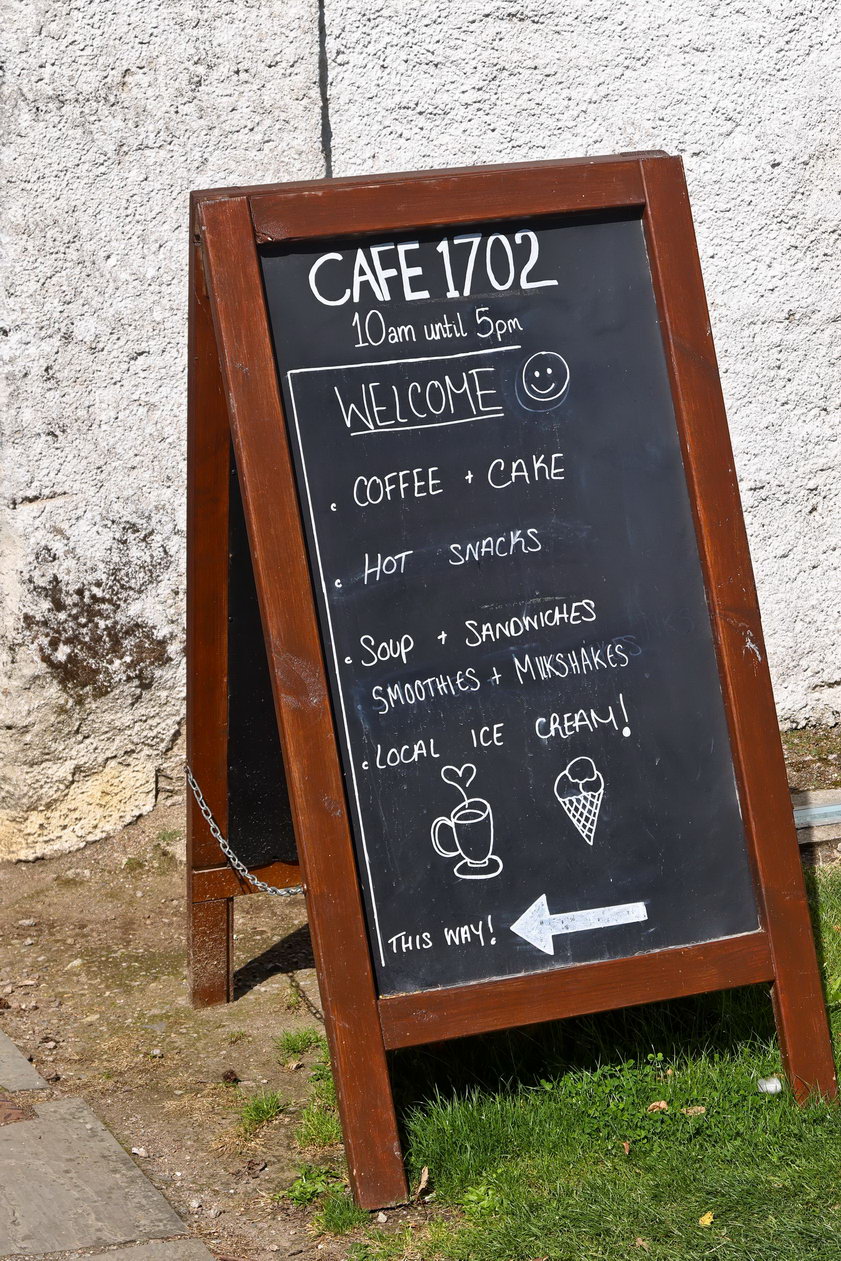 CAFE 1702
10am until 5pm
WELCOME
• COFFEE + CAKE
• HOT SNACKS
• SOUP + SANDWICHES
SMOOTHIES + MILKSHAKES
• LOCAL ICE CREAM!
THIS WAY!